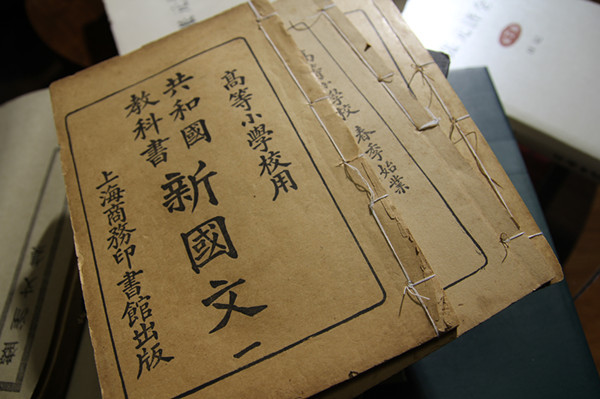 高等小學校用
共和國
教科書
新國文
一
上海商務印書館出版
高等小學校
春季始業